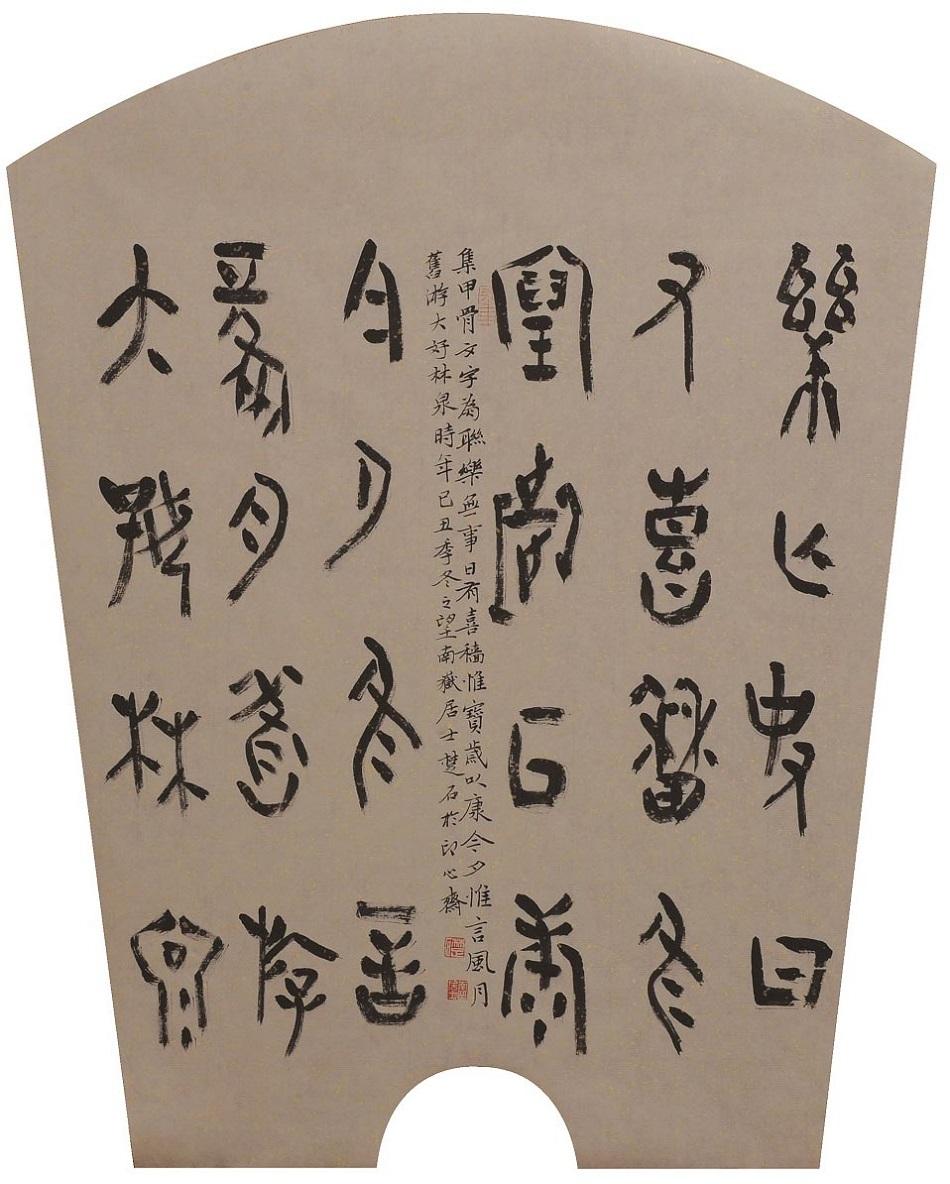 樂亡事日
又喜穡隹
寶歲以康
集甲骨文字為聯樂無事日有喜穡惟寶歲以康今夕惟言風月
舊游大好林泉時年己丑季冬之望南嶽居士楚石於印心齋
今夕隹言
風月舊游
大好林泉